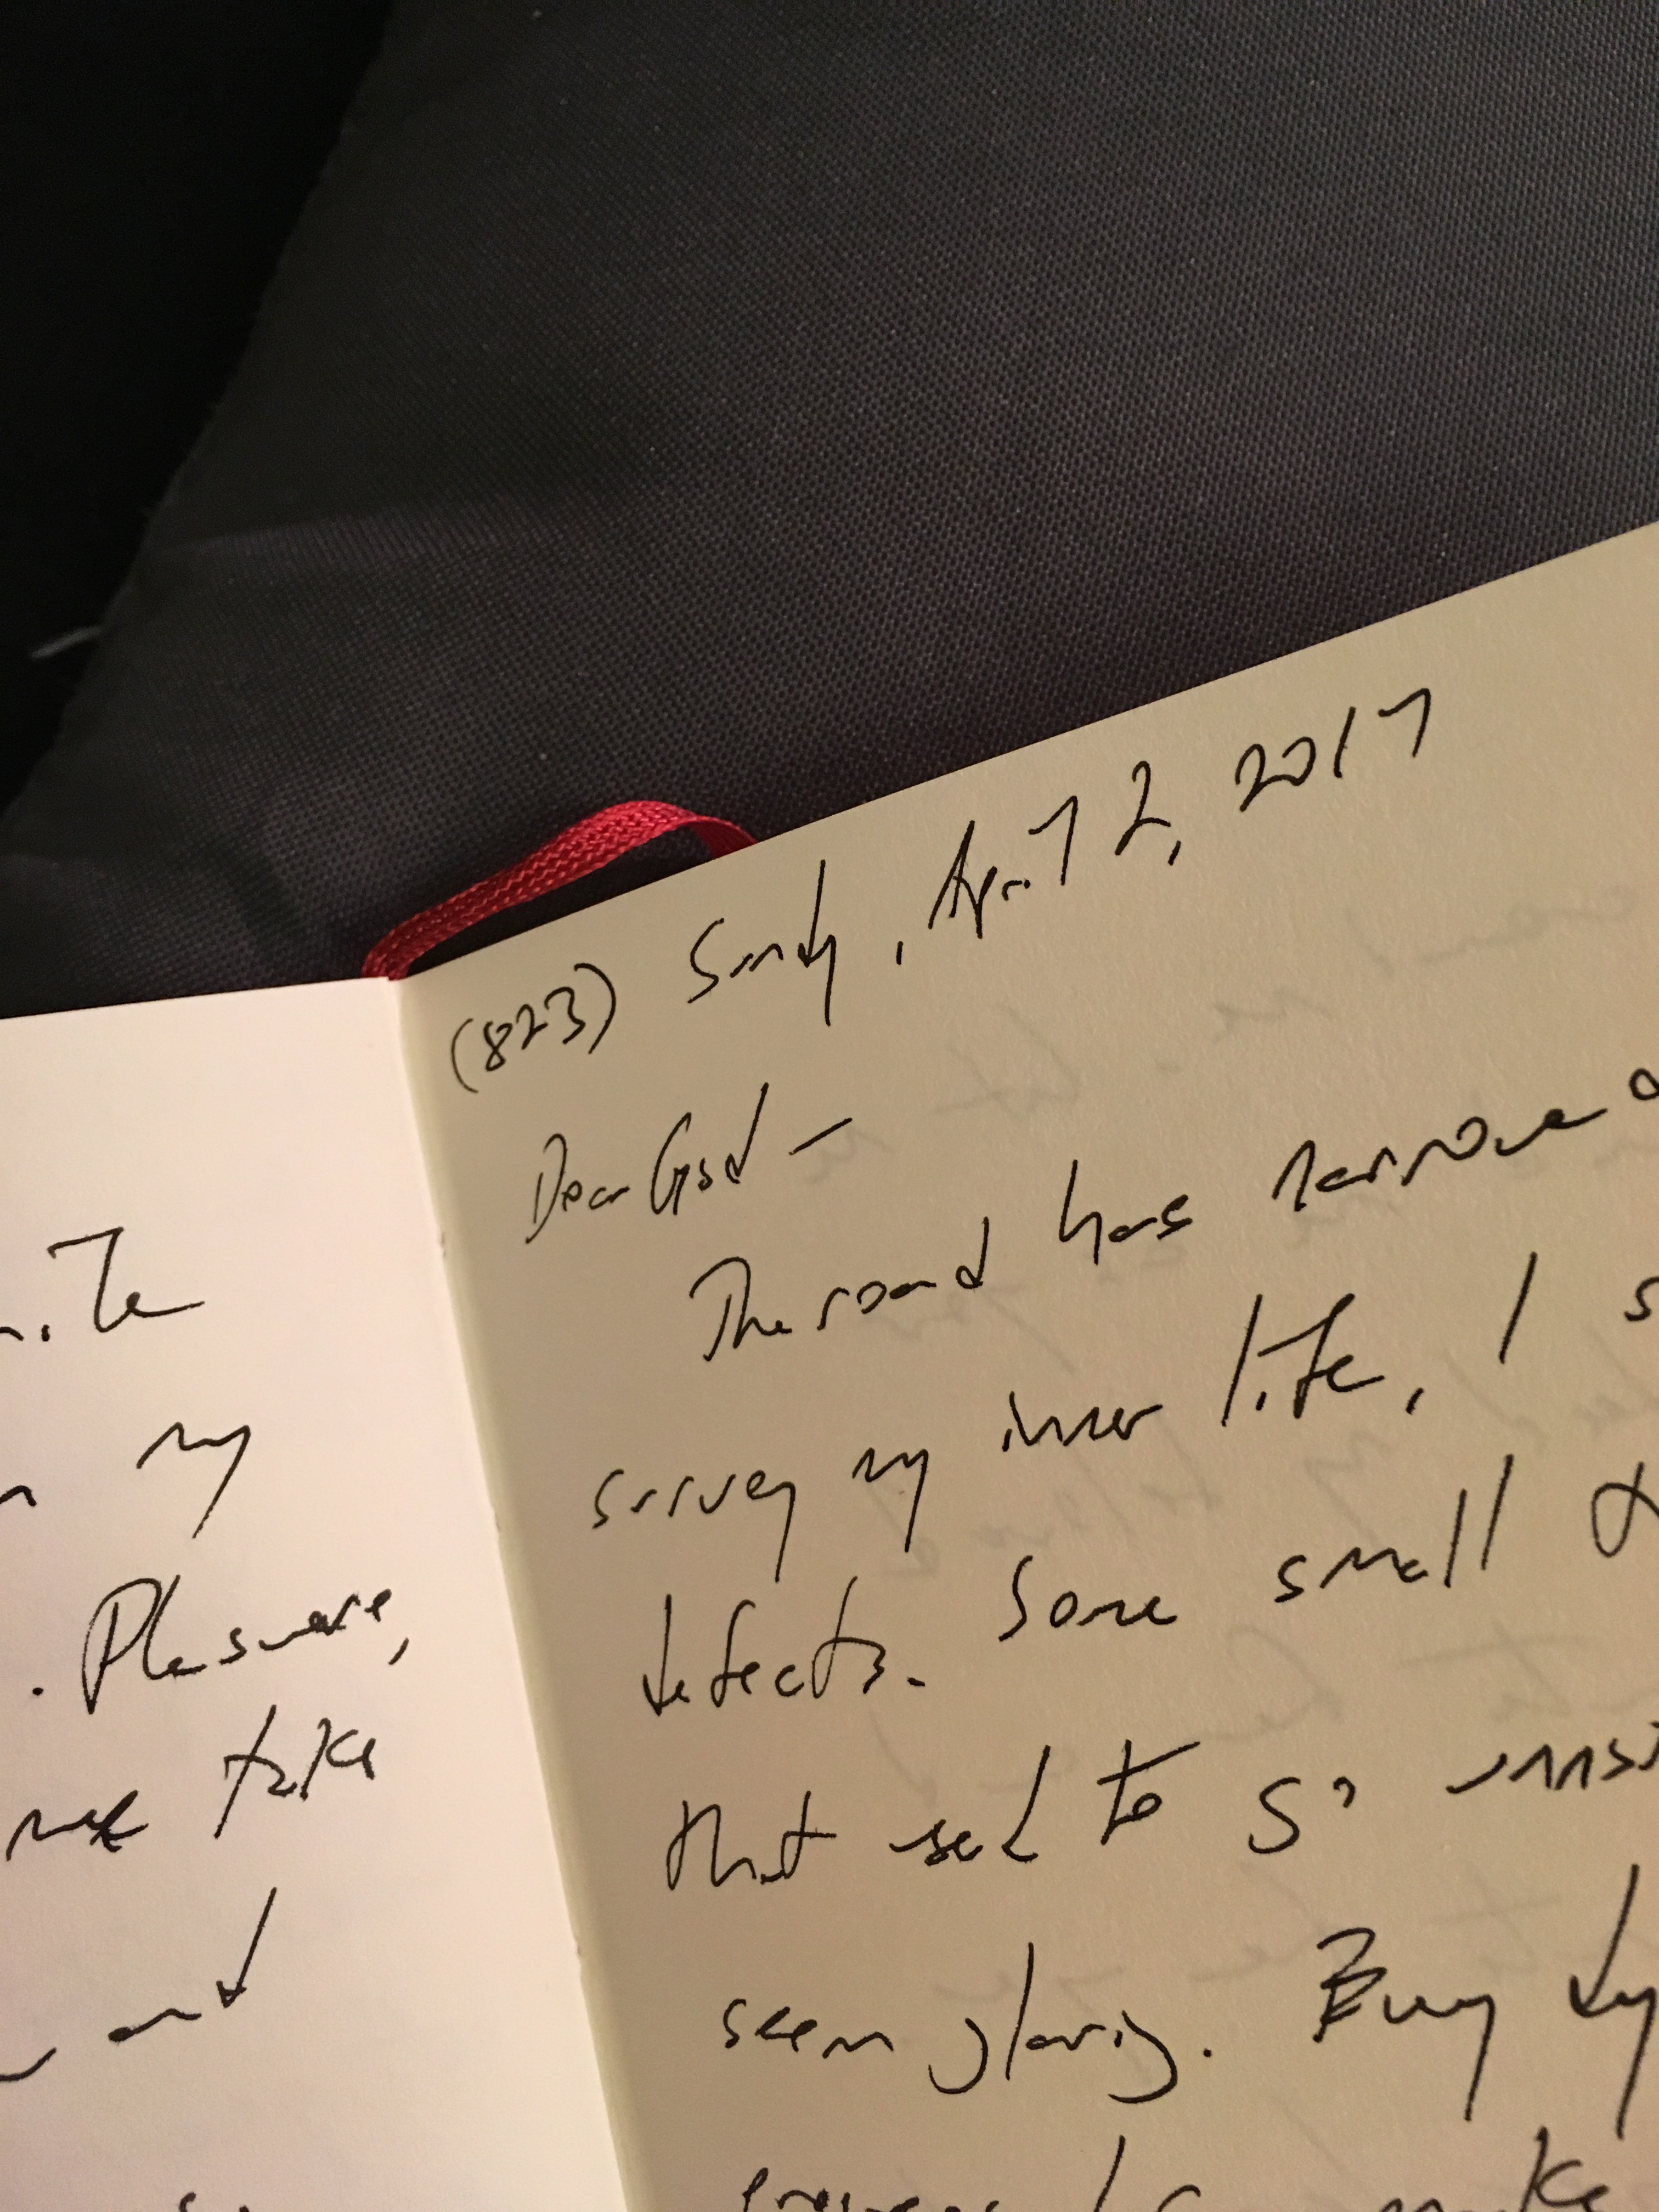 Te
my
. Pleasure,
take
and
(823) Sunday, April 2, 2017
Dear God —
The road has narrowed
survey my inner life, I s
defects. Some small
that used to go unnoti
seem glaring. Every day
make